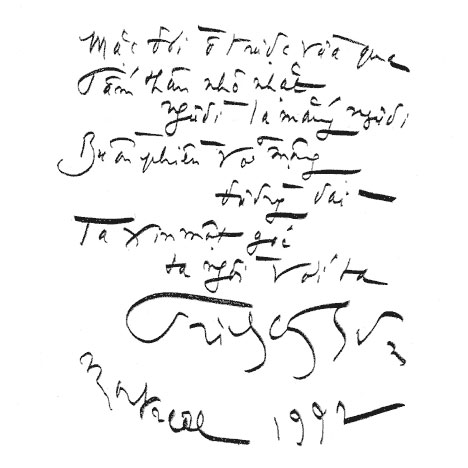 Mặc đời ô trược vừa qua
Tấm thân nhỏ nhặt
người la mắng người
Buồn phiền mộng
đường dài
Ta xin một ghế
ta ngồi với ta
Trịnh Công Sơn
Montréal 1992